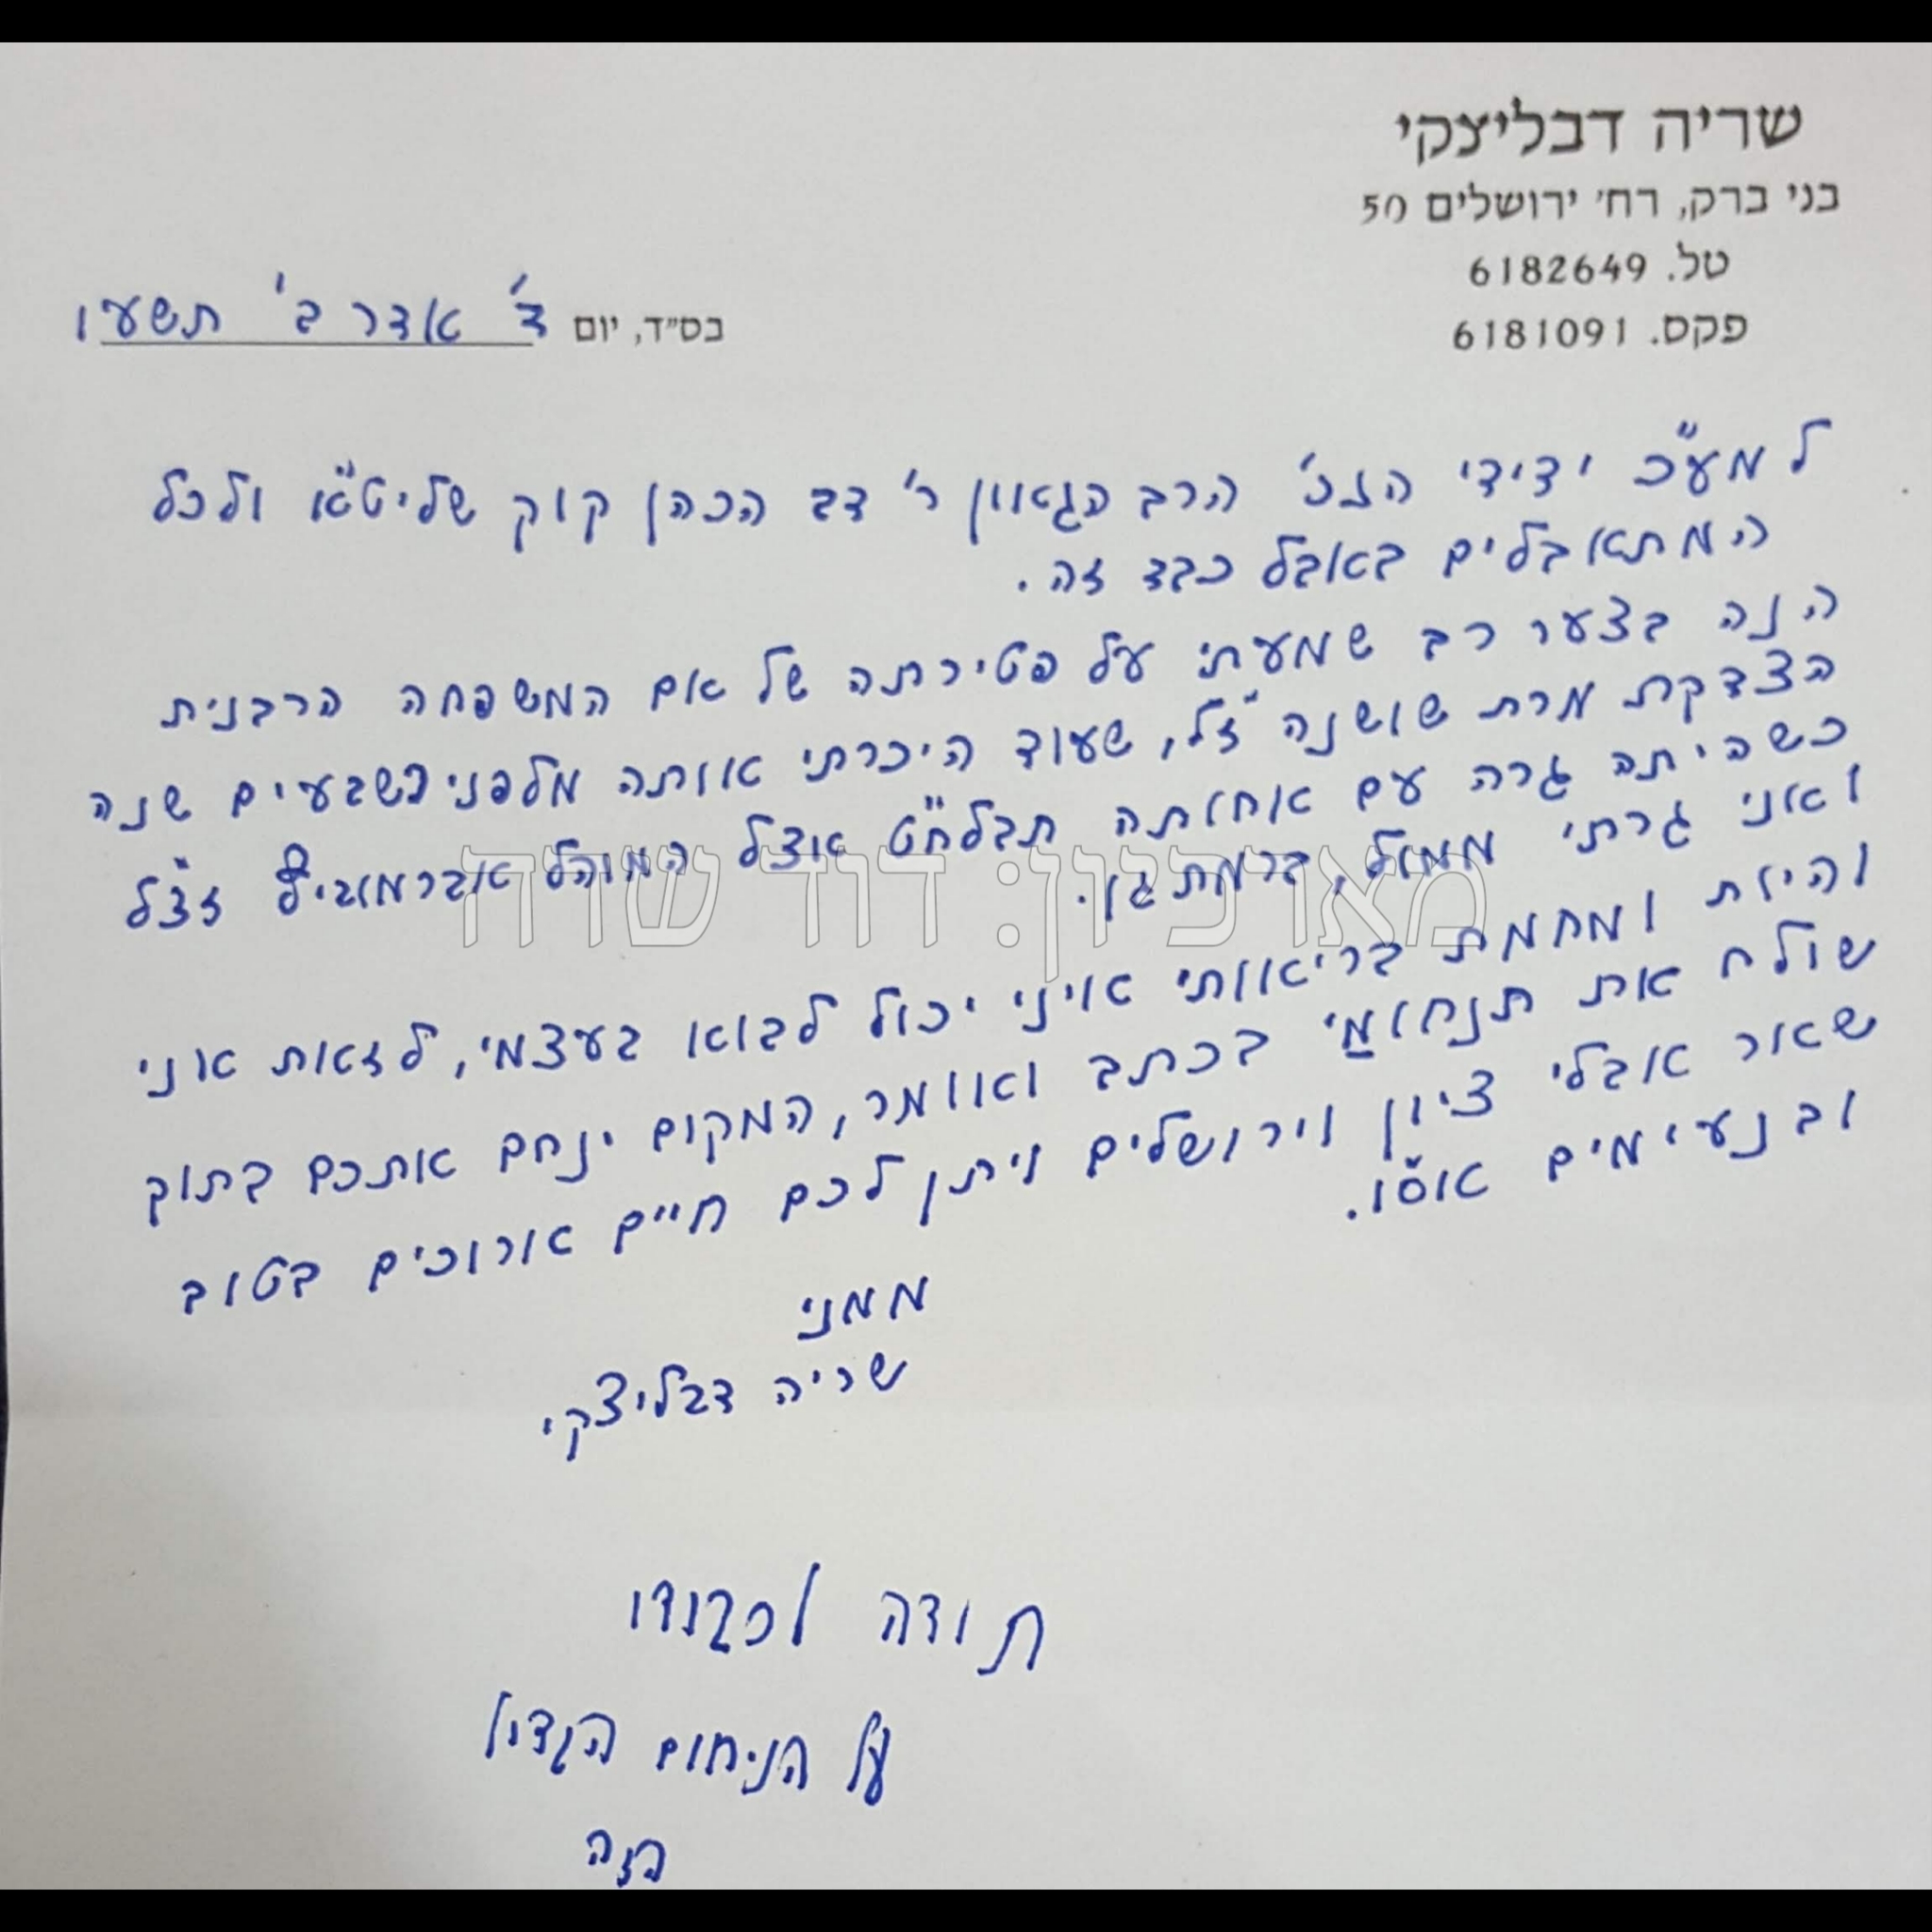 שריה דבליצקי
בני ברק, רח' ירושלים 50
טל. 6182649
פקס. 6181091
בס"ד, יום ד' אדר ב' תשעו
למע"כ ידידי הרב הגאון ר' דב הכהן קוק שליט"א ולכל
המתאבלים באבל כבד זה.
הנה בצער רב שמעתי על פטירתה של אם המשפחה הרבנית
הצדקת מרת שושנה ז"ל, שעוד היכרתי אותה מלפני כשבעים שנה
כשהיתה גרה עם אחותה תבלח"ט אצל המוהל אברמוביץ זצ"ל
ואני גרתי ממול, ברמת גן.
והיות ומחמת בריאותי איני יכול לבוא בעצמי, לזאת אני
שולח את תנחומי בכתב ואומר, המקום ינחם אתכם בתוך
שאר אבלי ציון וירושלים ויתן לכם חיים ארוכים בטוב
ובנעימים אוס"ו.
ממני
שריה דבליצקי
תודה לכבודו
על הניחום הגדול
הזה
מארכיון: דוד שדה